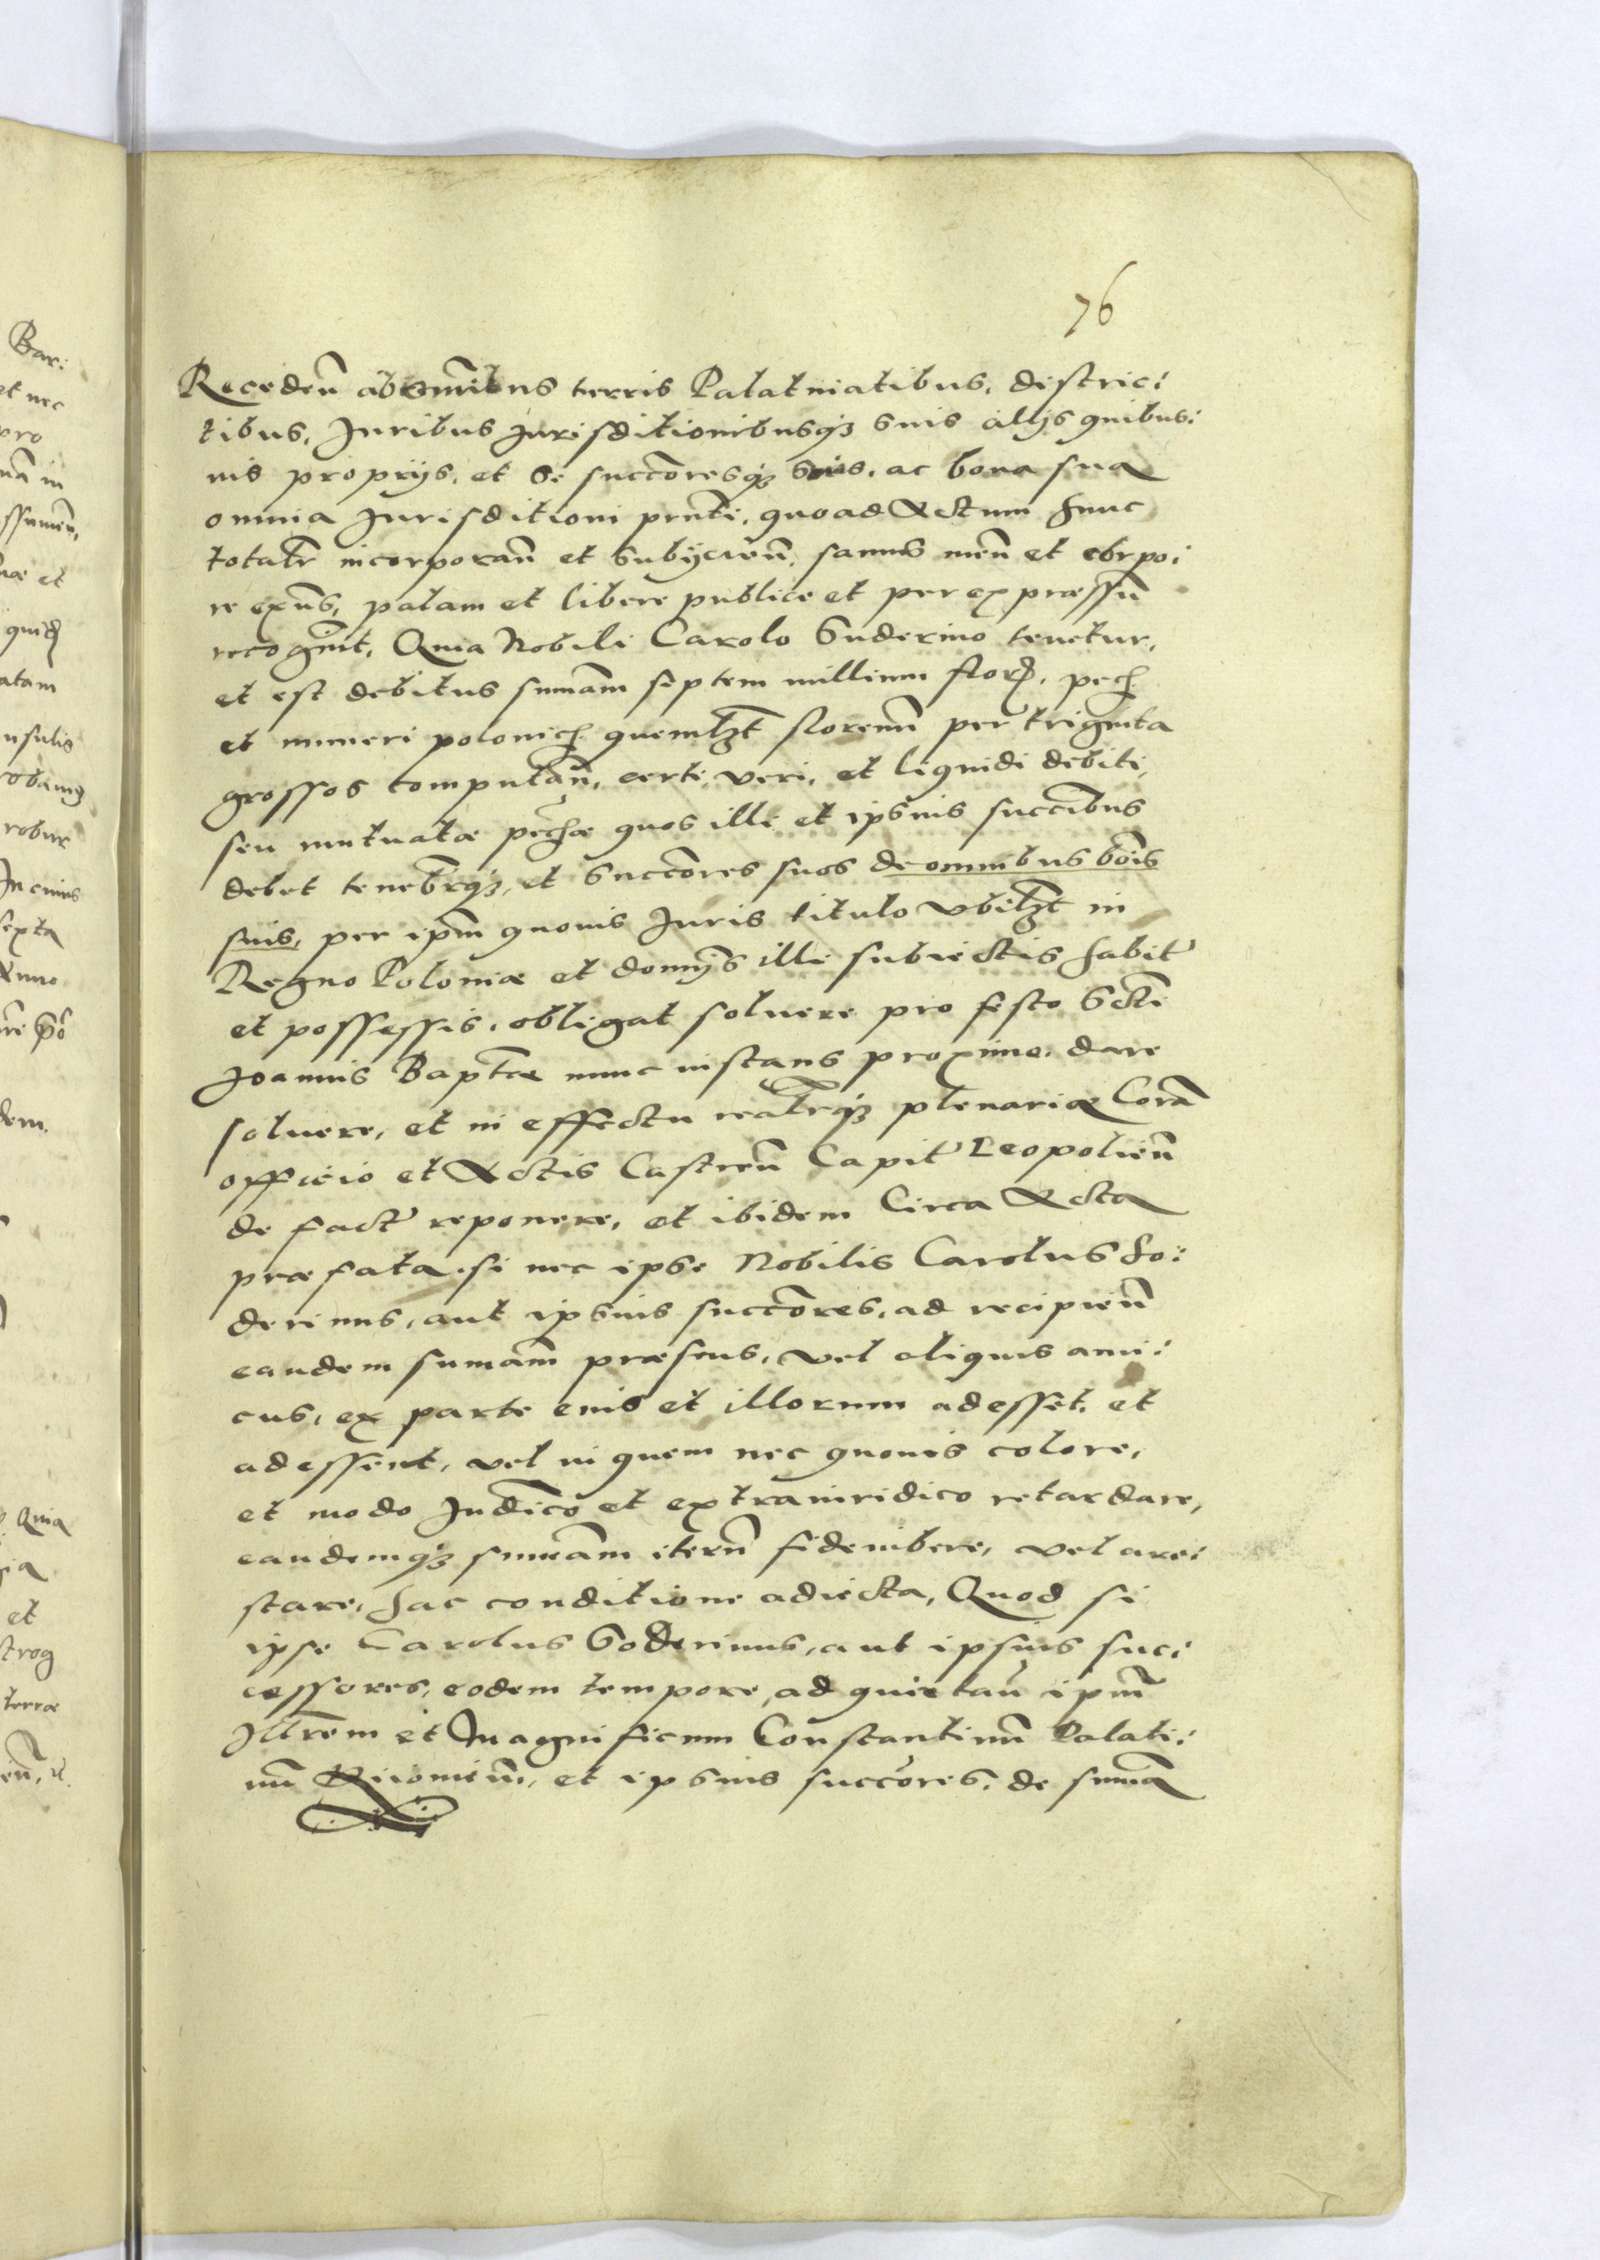 76
Receden̄ ab omībus terris Palatinatibus, distric:
tibus, Iuribus Iurisditionibusq3 suis alijs quibus:
uis proprijs, et se succōresq3 suos, ac bona sua
omnia Iurisditioni pn̄ti, quoad Actum hunc
totalr̄ incorporan̄ et subijcien̄, sanus men̄ et corpo:
re exn̄s, palam et libere publice et per expræssū
recognit, Quia Nobili Carolo Suderino tenetur,
et est debitus sum̄am septem millium flor, pec
et numeri polonic quemlꝫt florenū per triginta
grossos computan̄, certi, veri, et liquidi debiti,
seu mutuatæ pec̄æ quos illi et ipsius succībus
debet tenebr̄q3, et succōres suos de omnibus bōis
suis, per ipm̄ quouis Iuris titulo vbilꝫt in
Regno Poloniæ et domijs illi subiectis habit
et possessis, obligat soluere pro festo Scti
Ioannis Baptæ nunc instans proximo, dare
soluere, et in effectu realr̄q3 plenariæ Corā
officio et Actis Castren̄ Capit Leopolien̄
de fact reponere, et ibidem Circa Acta
præfata, si nec ipse Nobilis Carolus So:
derinus, aut ipsius succōres, ad recipien̄
eandem sum̄am præsens, vel aliquis ami:
cus, ex parte eius et illorum adesset, et
adessent, vel in quem nec quouis colore,
et modo Iudīco et extraiuridico retardare,
eandemq3 sum̄am iterū fideiubere, vel are:
stare, hac conditione adiecta, Quod si
ipse Carolus Soderinus, aut ipsius suc:
cessores, eodem tempore, ad quietan̄ ipm̄
Illrēm et Magnificum Constantinū Palati:
nū Kiiouien̄, et ipsius succōres, de summa